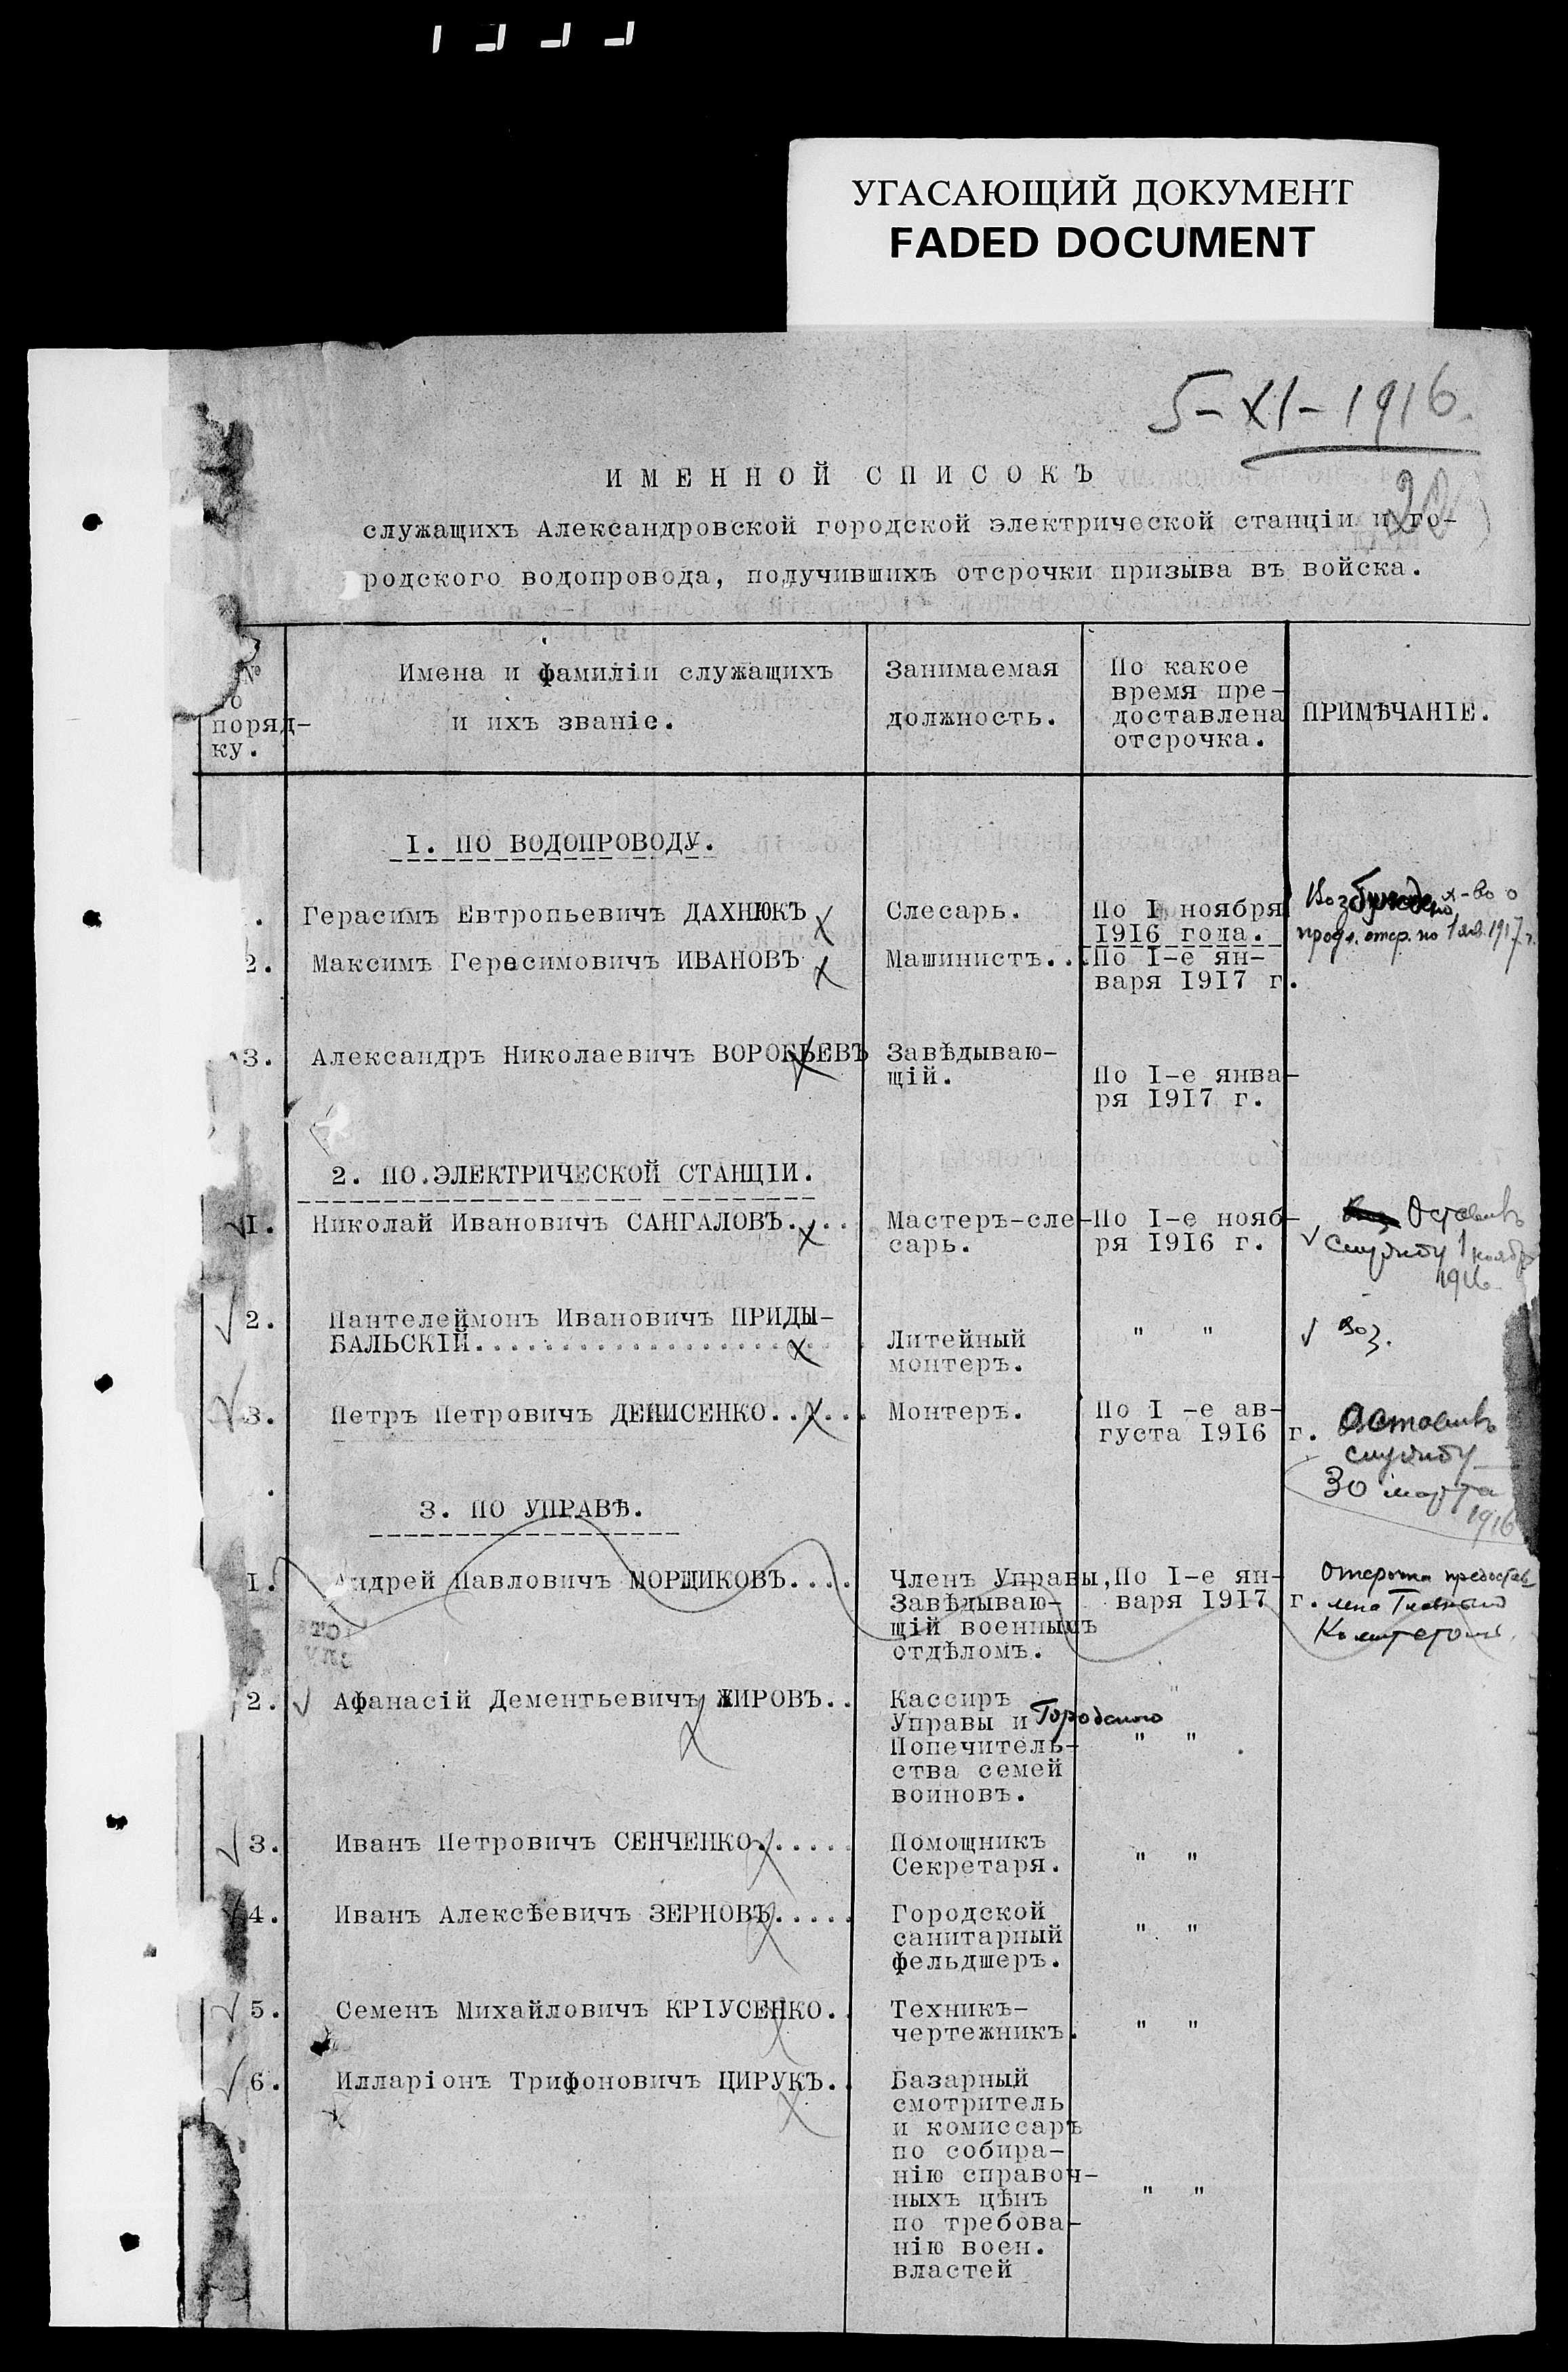 УГАСАЮЩИЙ ДОКУМЕНТ
FADED DOCUMENT
5-XI-1916.
ИМЕННОЙ СПИСОКЪ
служащихъ Александровской городской электрической станціи и го-
родского водопровода, получившихъ отсрочки призыва въ войска.
№
по
поряд-
ку.
Имена и фамиліи служащихъ
и ихъ званіе.
Занимаемая
должность.
По какое
время пре-
доставлена
отсрочка.
ПРИМѢЧАНІЕ.
I. ПО ВОДОПРОВОДУ.
. Герасимъ Евтропьевичъ ДАХНЮКЪ
Слесарь.
По I ноября
1916 года.
Возбуждено х-во о
продл. отср. по 1 янв. 1917 г.
2. Максимъ Герасимовичъ ИВАНОВЪ
Машинистъ...
По I-е ян-
варя 1917 г.
3. Александръ Николаевичъ ВОРОБЬЕВЪ
Завѣдываю-
щій.
По I-е янва-
ря 1917 г.
2. ПО.ЭЛЕКТРИЧЕСКОЙ СТАНЦІИ.
I. Николай Ивановичъ САНГАЛОВЪ....
Мастеръ-сле-
сарь.
По I-е нояб-
ря 1916 г.
Оставилъ
службу 1 ноября
1916
2. Пантелеймонъ Ивановичъ ПРИДЫ-
БАЛЬСКІЙ......................
Литейный
монтеръ.
" "
Воз.
3. Петръ Петровичъ ДЕНИСЕНКО......
Монтеръ.
По I -е ав-
густа 1916 г.
Оставилъ
службу
30 марта
1916
3. ПО УПРАВѢ.
I. Андрей Павловичъ МОРЩИКОВЪ....
Членъ Управы,
Завѣдываю-
щій военнымъ
отдѣломъ.
По I-е ян-
варя 1917 г.
Отсрочка предостав
лена Главным
Комитетомъ.
2. Афанасій Дементьевичъ ЖИРОВЪ..
Кассиръ
Управы и Городского
Попечитель-
ства семей
воиновъ.
" "
3. Иванъ Петровичъ СЕНЧЕНКО......
Помощникъ
Секретаря.
" "
4. Иванъ Алексѣевичъ ЗЕРНОВЪ.....
Городской
санитарный
фельдшеръ.
" "
5. Семенъ Михайловичъ КРІУСЕНКО..
Техникъ-
чертежникъ.
" "
6. Илларіонъ Трифоновичъ ЦИРУКЪ..
Базарный
смотритель
и комиссаръ
по собира-
нію справоч-
ныхъ цѣнъ
по требова-
нію воен.
властей
" "